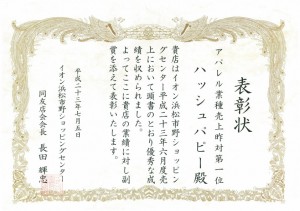 表彰状
アパレル業種売上昨対第一位
ハッシュパピー殿
貴店はイオン浜松市野ショッピン
グセンター平成二十三年六月度売
上において頭書のとおり優秀な成
績を収められました。
よってここに貴店の業績に対し副
賞を添えて表彰いたします。
平成二十三年七月五日
イオン浜松市野ショッピングセンター
同友店会会長 長田輝忠